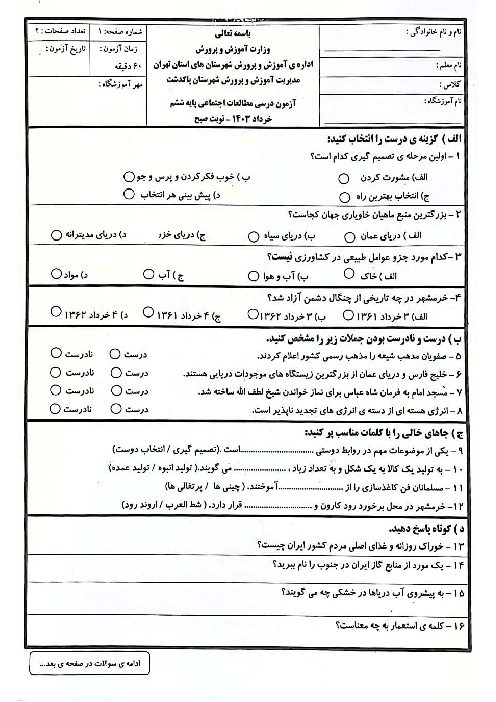 باسمه تعالی
نام و نام خانوادگی :
نام معلم :
کلاس :
نام آموزشگاه:
وزارت آموزش و پرورش
اداره ی آموزش و پرورش شهرستان های استان تهران
مدیریت آموزش و پرورش شهرستان پاکدشت
آزمون درسی مطالعات اجتماعی پایه ششم
خرداد ۱۴۰۳ - نوبت صبح
شماره صفحه: ۱
تعداد صفحات : ۲
زمان آزمون :
۶۰ دقیقه
تاریخ آزمون :
مهر آموزشگاه :
الف ) گزینه ی درست را انتخاب کنید:
۱ - اولین مرحله ی تصمیم گیری کدام است؟
الف) مشورت کردن ب ) خوب فکر کردن و پرس و جو
ج) انتخاب بهترین راه د) پیش بینی هر انتخاب
۲ - بزرگترین منبع ماهیان خاویاری جهان کجاست؟
الف ) دریای عمان ب) دریای سیاه ج) دریای خزر د) دریای مدیترانه
۳ -کدام مورد جزو عوامل طبیعی در کشاورزی نیست؟
الف ) خاک ب) آب و هوا ج ) آب د) مواد
۴- خرمشهر در چه تاریخی از چنگال دشمن آزاد شد؟
الف) ۳ خرداد ۱۳۶۱ ب) ۳ خرداد ۱۳۶۲ ج) ۴ خرداد ۱۳۶۱ د) ۴ خرداد ۱۳۶۲
ب ) درست و نادرست بودن جملات زیر را مشخص کنید.
۵ - صفویان مذهب شیعه را مذهب رسمی کشور اعلام کردند. درست نادرست
۶ - خلیج فارس و دریای عمان از بزرگترین زیستگاه های موجودات دریایی هستند. درست نادرست
۷ - مسجد امام به فرمان شاه عباس برای نماز خواندن شیخ لطف الله ساخته شد. درست نادرست
۸ - انرژی هسته ای از دسته ی انرژی های تجدید ناپذیر است. درست نادرست
ج ) جاهای خالی را با کلمات مناسب پر کنید:
۹ - یکی از موضوعات مهم در روابط دوستی ....................است .(تصمیم گیری / انتخاب دوست)
۱۰ - به تولید یک کالا به یک شکل و به تعداد زیاد ، ................ می گویند.( تولید انبوه / تولید عمده)
۱۱ - مسلمانان فن کاغذسازی را از ....................آموختند. ( چینی ها / پرتغالی ها)
۱۲- خرمشهر در محل برخورد رود کارون و .................... قرار دارد. ( شط العرب / اروند رود)
د ) کوتاه پاسخ دهید.
۱۳ - خوراک روزانه و غذای اصلی مردم کشور ایران چیست؟
۱۴ - یک مورد از منابع گاز ایران در جنوب را نام ببرید؟
۱۵ - به پیشروی آب دریاها در خشکی چه می گویند؟
۱۶ - کلمه ی استعمار به چه معناست؟
ادامه ی سوالات در صفحه ی بعد...